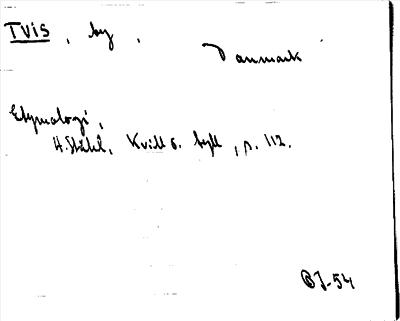 TVIS, by,
Danmark
Etymologi,
H. Ståhl, Kvill o. tyll, s. 112.
BJ-54